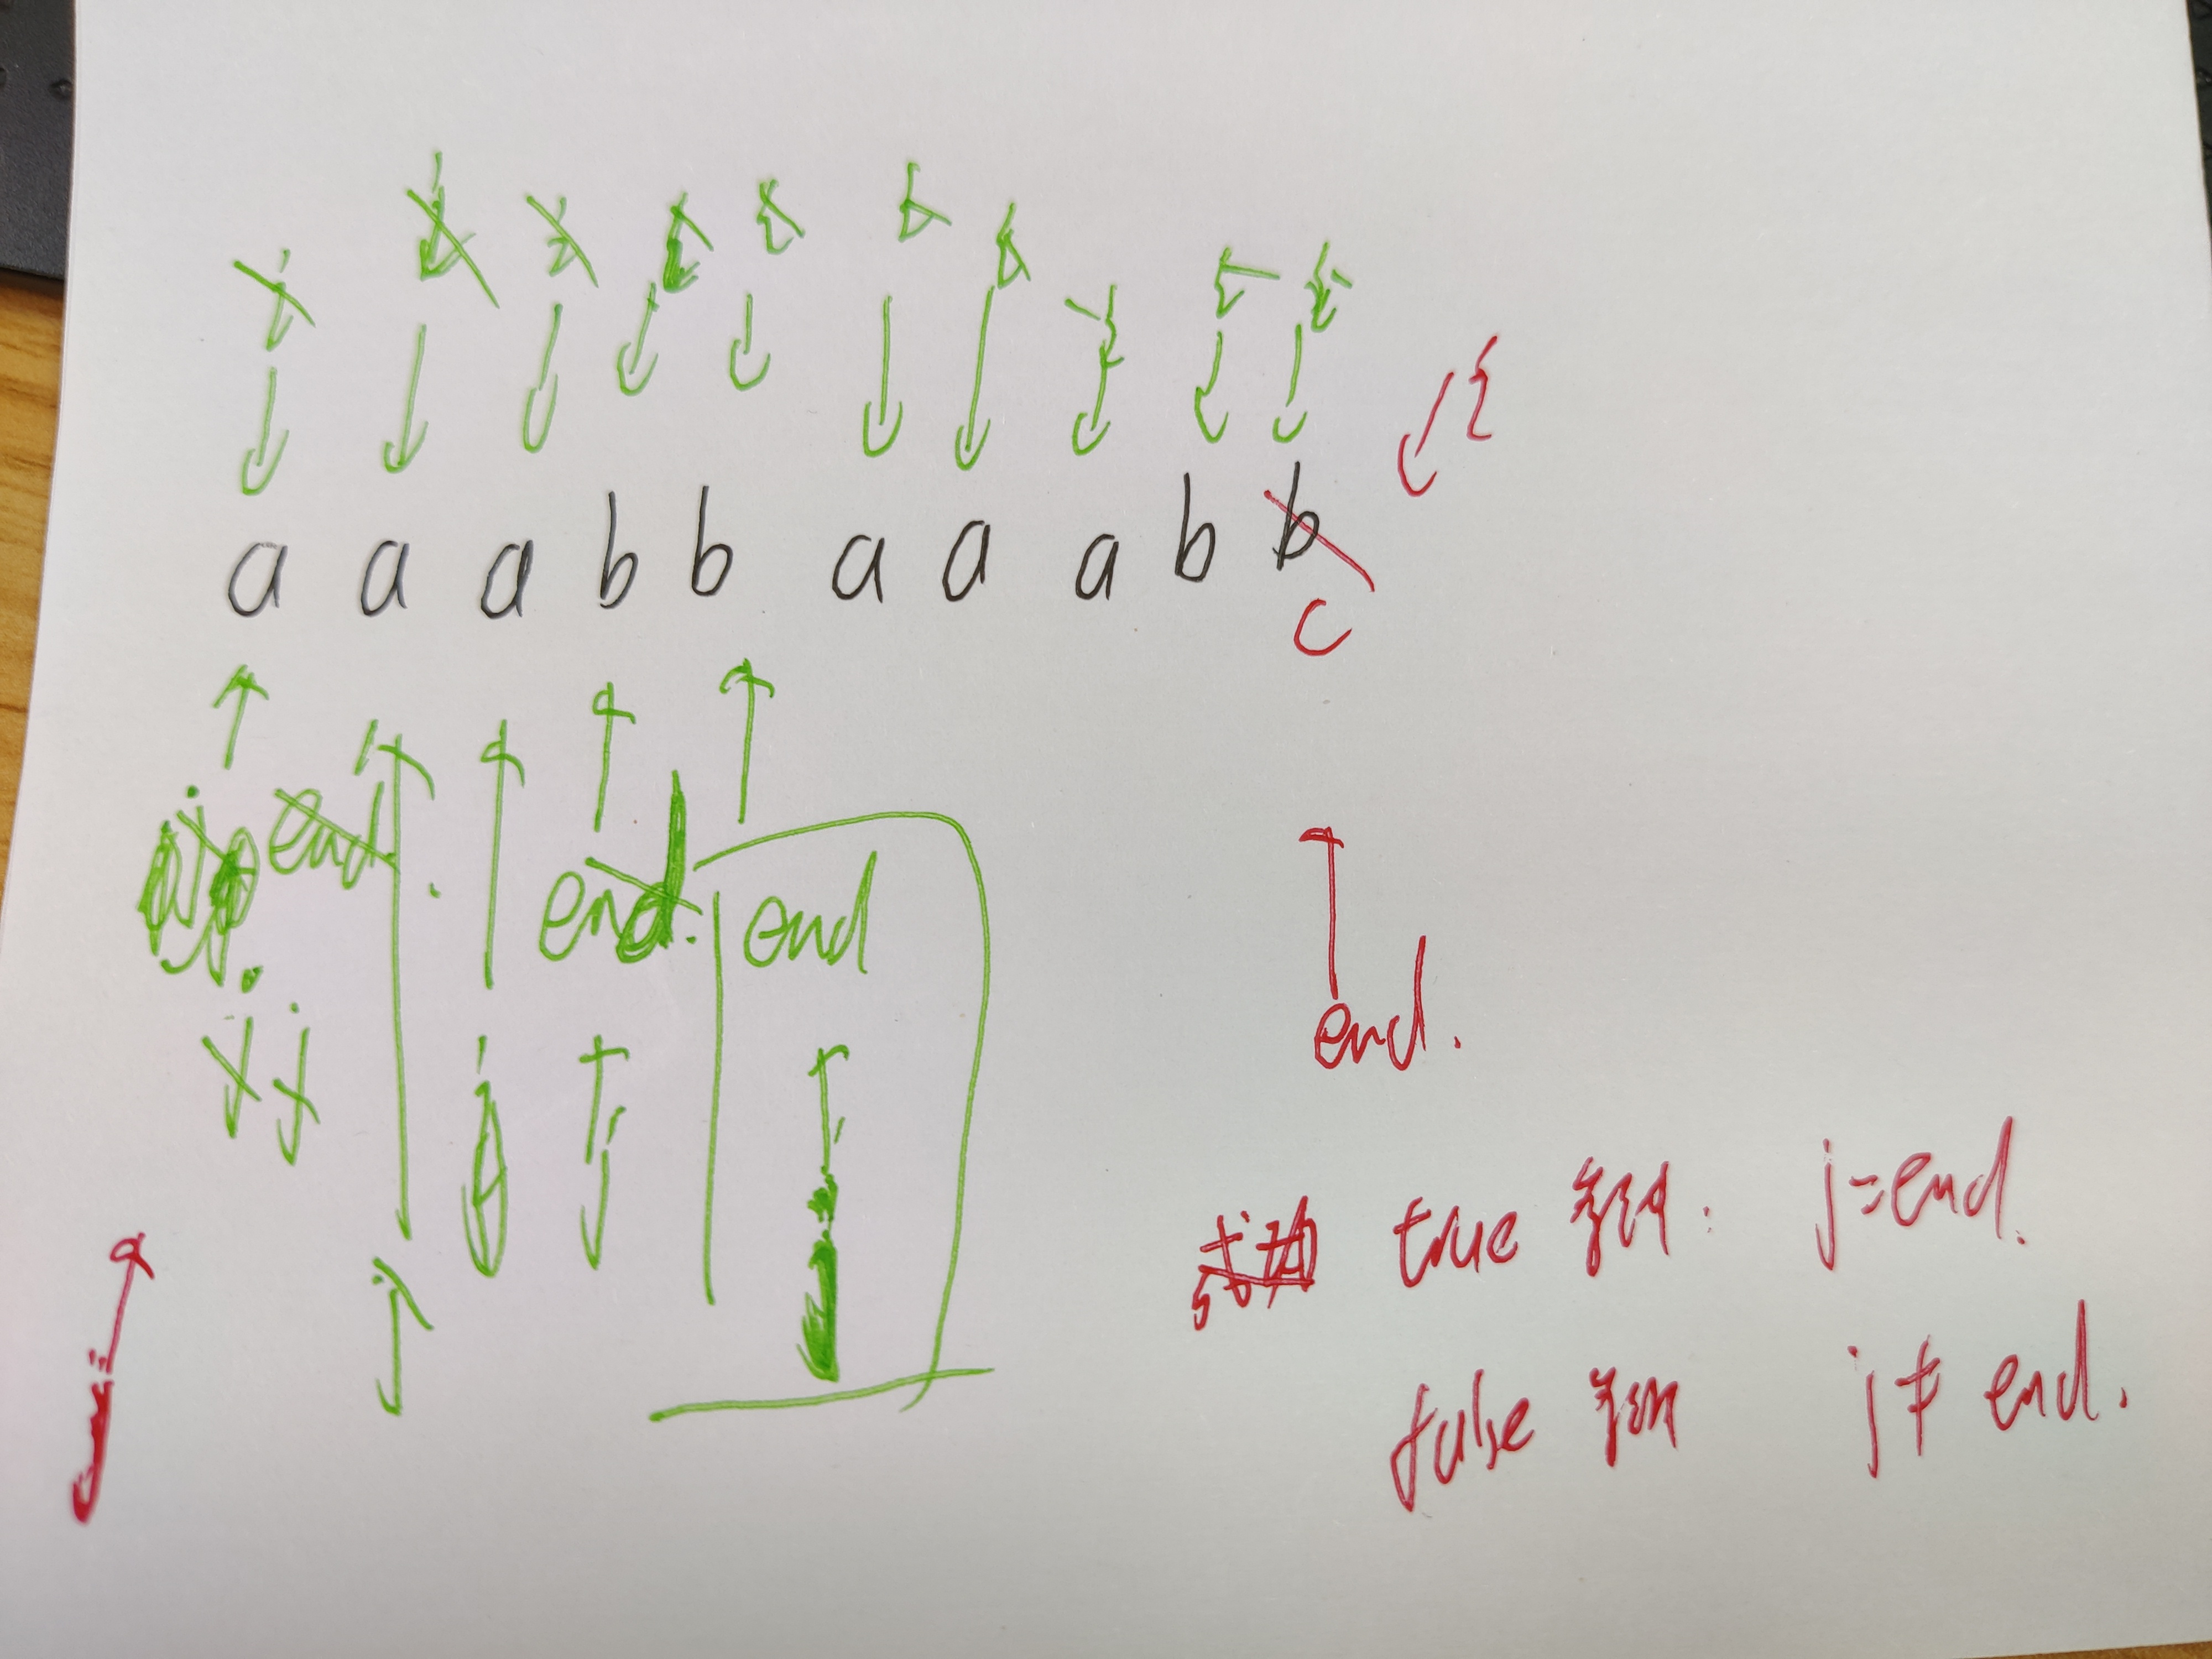 i i i i i i i i i i i
a a a b b a a a b b
c
j end
end end
j j
end.
j j j j
true 条件: j=end.
false 条件 j≠ end.